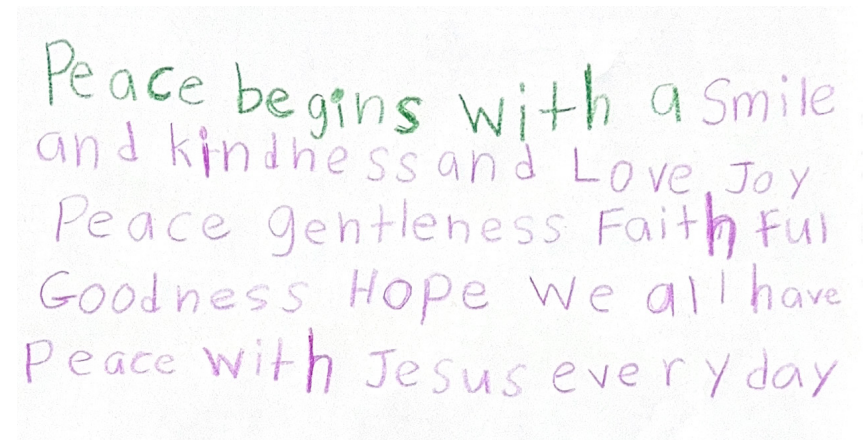 Peace begins with a Smile
and kindness and Love Joy
Peace gentleness Faithful
Goodness Hope We all have
Peace with Jesus every day